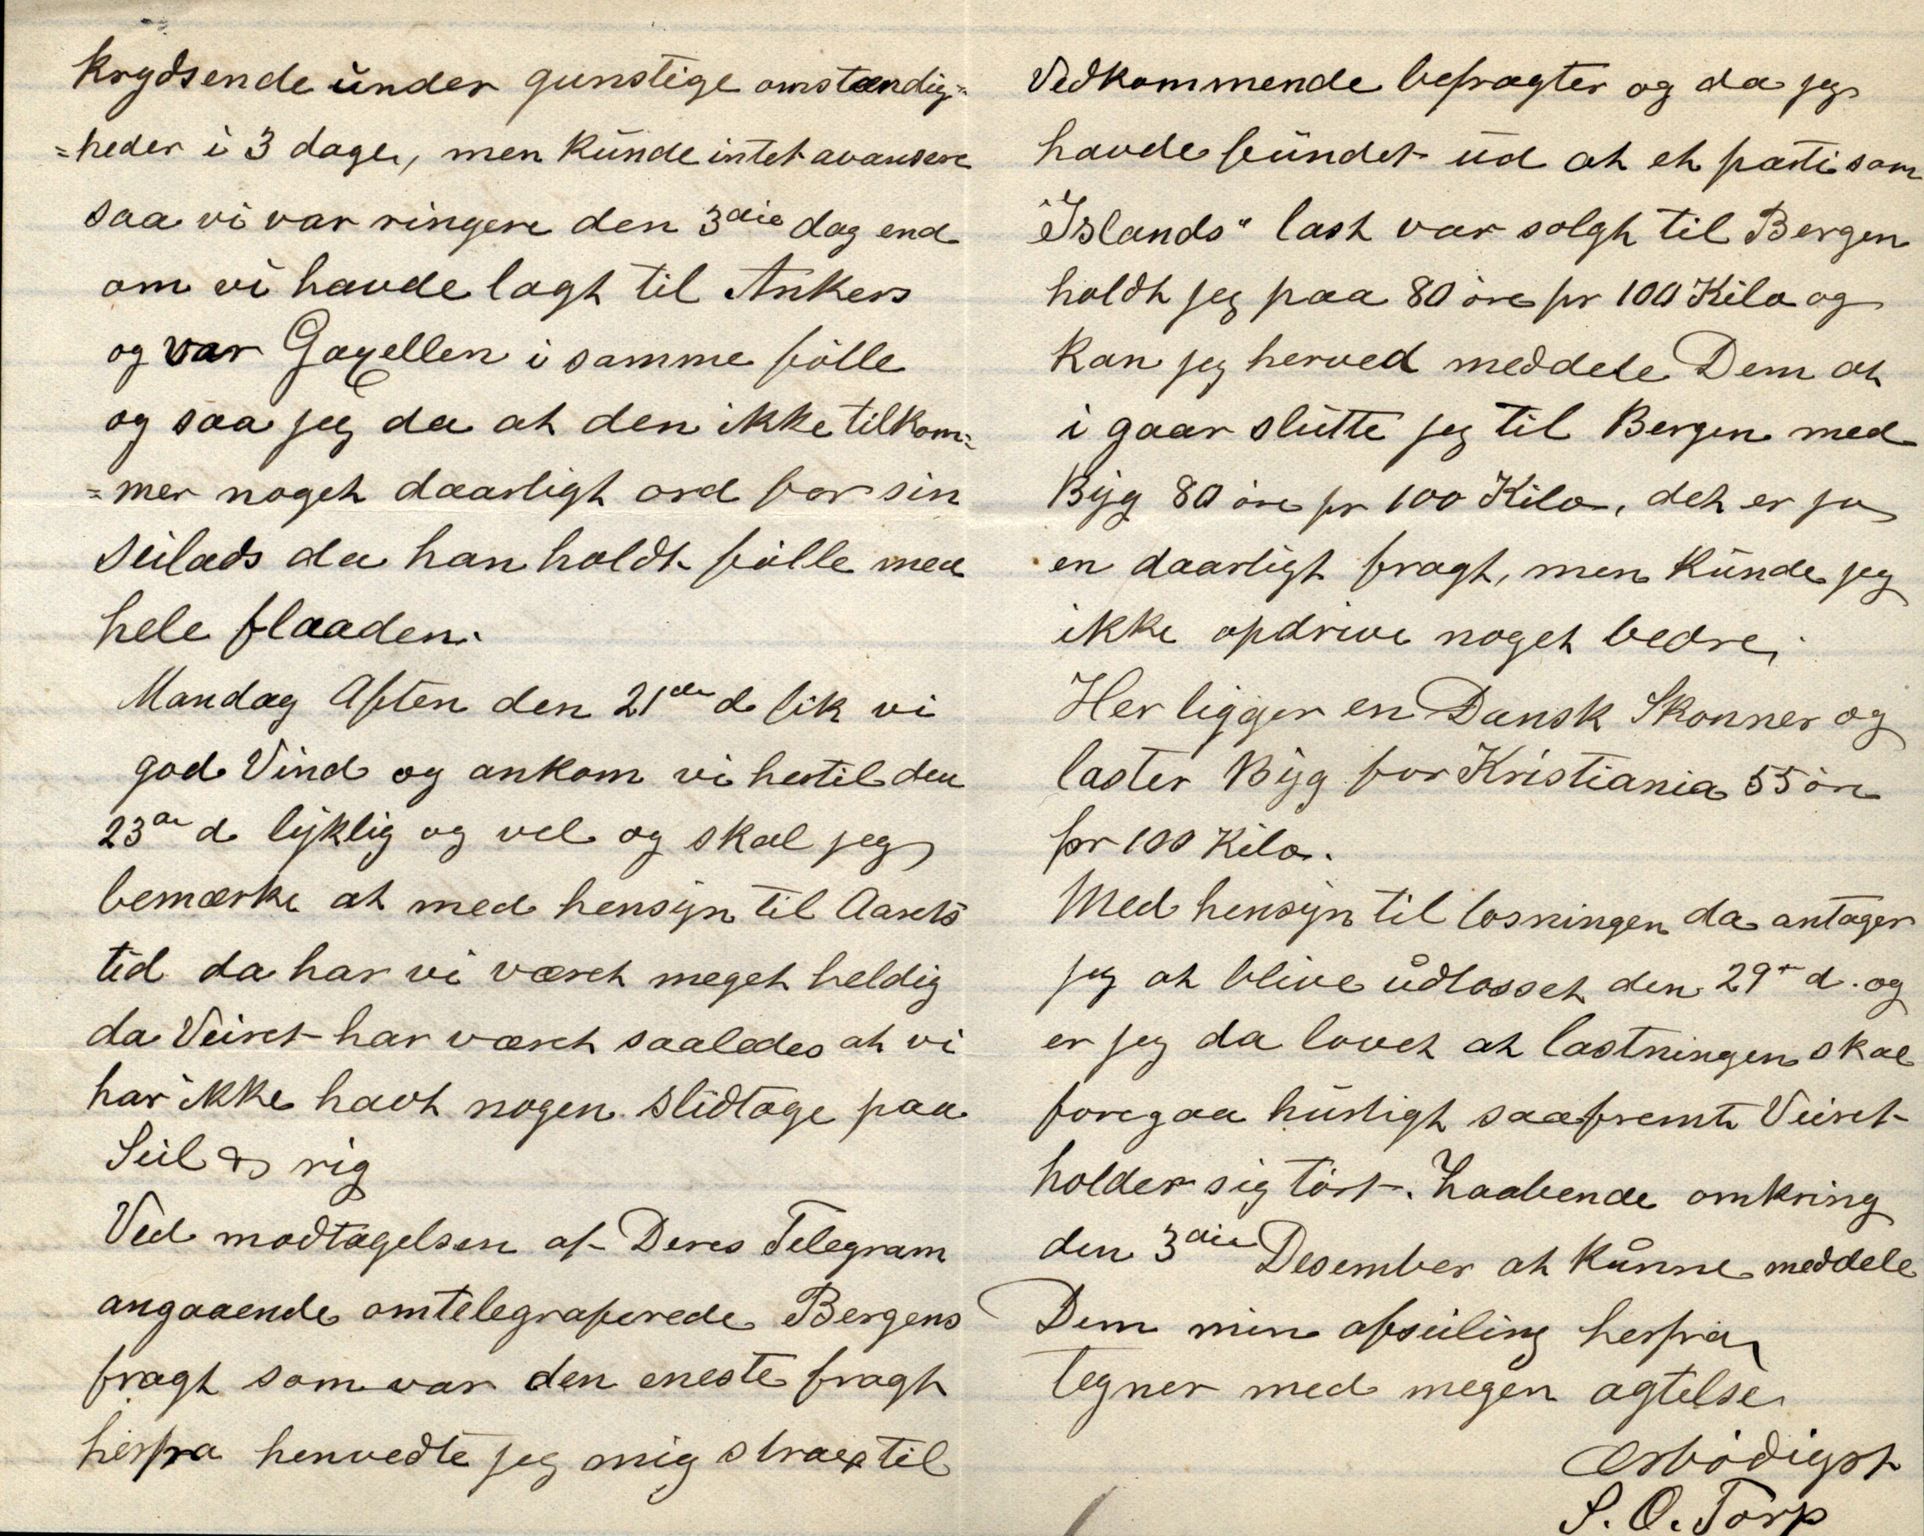 krydsende under gunstige omstændig=
=heder i 3 dage, men kunde intet avansere
saa vi var ringere den 3die dag end
om vi havde lagt til Ankers
og var Gazellen i samme fölle
og saa jeg da at den ikke tilkom=
=mer noget daarligt ord for sin
Seilads da han holdt fölle med
hele flaaden.
Mandag Aften den 21de d fik vi
god Vind og ankom vi hertil den
23de d lyklig og vel og skal jeg
bemærke at med hensyn til Aarets
tid da har vi været meget heldig
da Veiret har været saaledes at vi
har ikke havt nogen slidtage paa
Seil & rig
Ved modtagelsen af Deres Telegram
angaaende omtelegraferede Bergens
fragt som var den eneste fragt
herfra henvedte jeg mig strax til
Vedkommende befragter og da jeg
havde fundet ud at et parti som
"Islands" last var solgt til Bergen
holdt jeg paa 80 öre pr 100 Kilo og
kan jeg herved meddele Dem at
i gaar slutte jeg til Bergen med
Byg 80 öre pr 100 Kilo, det er jo
en daarligt fragt, men kunde jeg
ikke opdrive noget bedre.
Her ligger en Dansk Skonner og
laster Byg for Kristiania 55 öre
pr 100 Kilo.
Med hensyn til losningen da antager
jeg at blive udlosset den 29de d. og
er jeg da lovet at lastningen skal
foregaa hurtigt saafremt Veiret
holder sig tört. Haabende omkring
den 3die Desember at kunne meddele
Dem min afseiling herfra
tegner med megen agtelse
ærbödigst
S. O. Torp